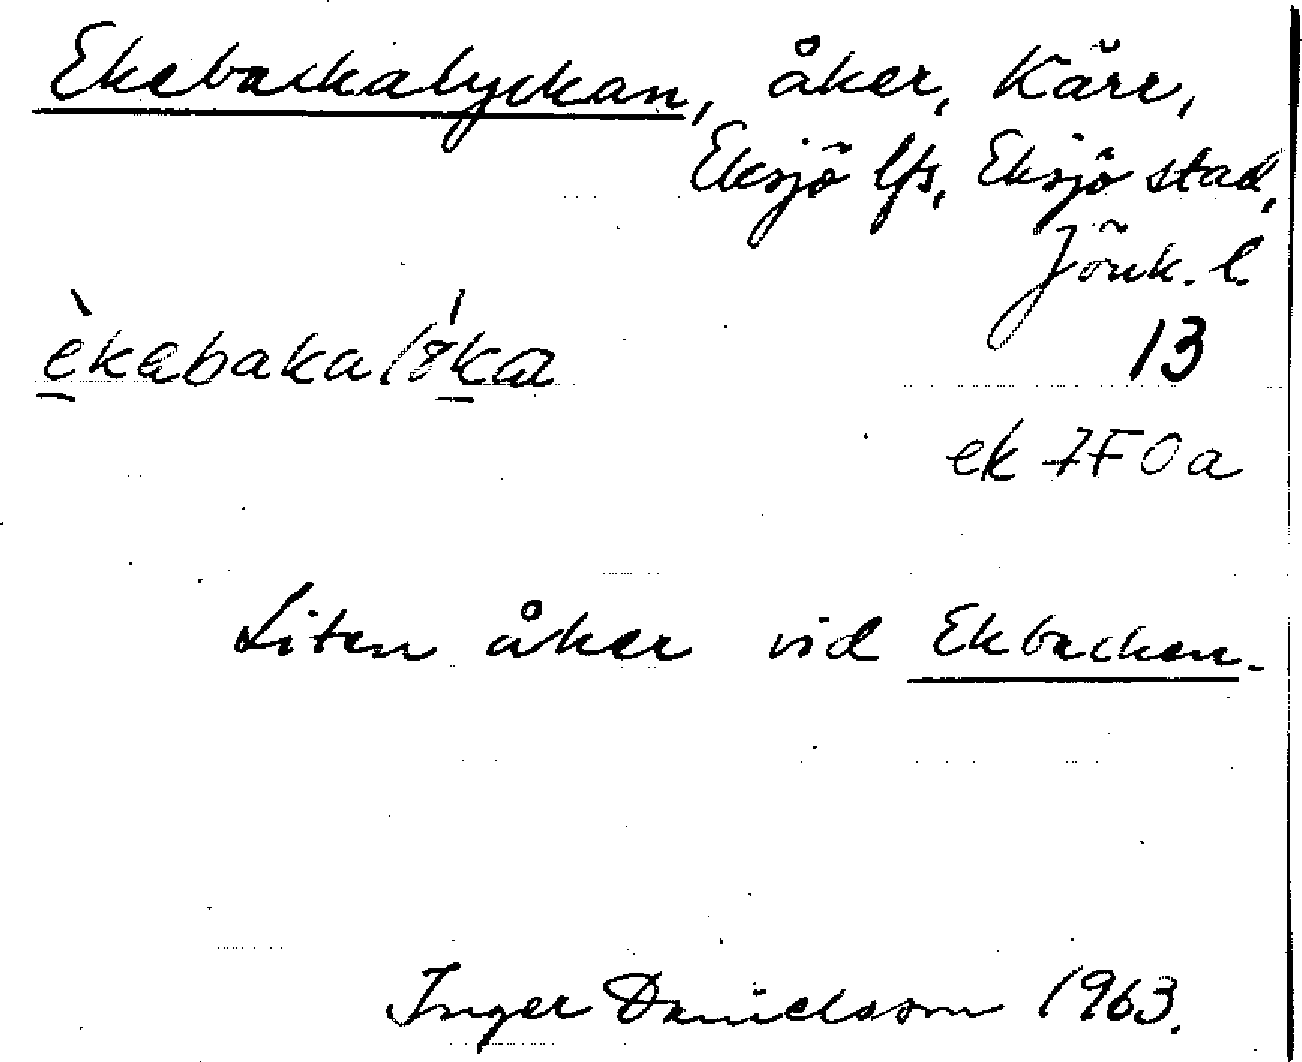 Ekebackalyckan, åker, Kärr,
Eksjö lfs, Eksjö stad,
Jönk. l.
èkabakaløka
13
ek 7F0a
Liten åker vid Ekbacken.
Inger Danielsson 1963.